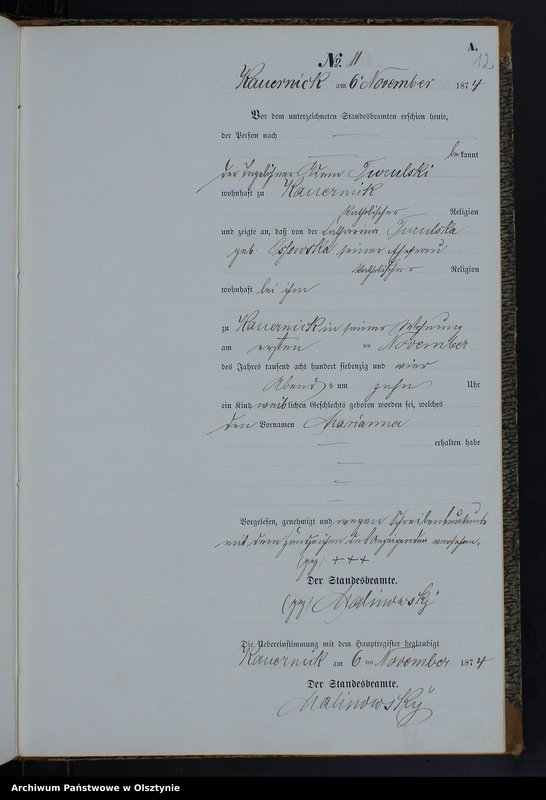 A.
12
No. 11
Kauernick am 6t November 1874
Vor dem unterzeichneten Standesbeamten erschien heute,
der Person nach
bekannt
der Tagelöhner Turulski
wohnhaft zu Kauernik
katholischer Religion
und zeigte an, daß von der Catharina Turulska
geb. Ossowska seiner Ehefrau
katholischer Religion
wohnhaft bei ihm
zu Kauernick in seiner Wohnung
am ersten ten November
des Jahres tausend acht hundert siebenzig und vier
Abends um zehn Uhr
ein Kind weiblichen Geschlechts geboren worden sei, welches
den Vornamen Marianna
erhalten habe
Vorgelesen, genehmigt und wegen Schreibensunkunde
mit dem Handzeichen des Anzeigenden versehen.
(gez) +++
Der Standesbeamte.
(gez) Malinowsky
Die Uebereinstimmung mit dem Hauptregister beglaubigt
Kauernik am 6 ten November 1874
Der Standesbeamte.
Malinowsky
Archiwum Państwowe w Olsztynie